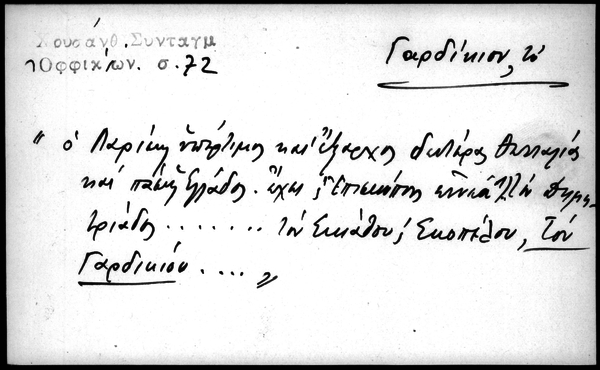 Χουσάνθ. Συνταγμ
Ὀφφικίων. σ. 72
Γαρδίκιον, τὸ
" ὁ Λαρίσης ὑπέρτιμος καὶ ἔξαρχος δευτέρας Θετταλίας
καὶ πάσης Ἑλλάδος. ἔχει Ἐπισκόπους ἐννέα τὸν Δημη-
τριάδος ....... τὸν Σκιάθου, Σκοπέλου, τὸν
Γαρδικίου .... "